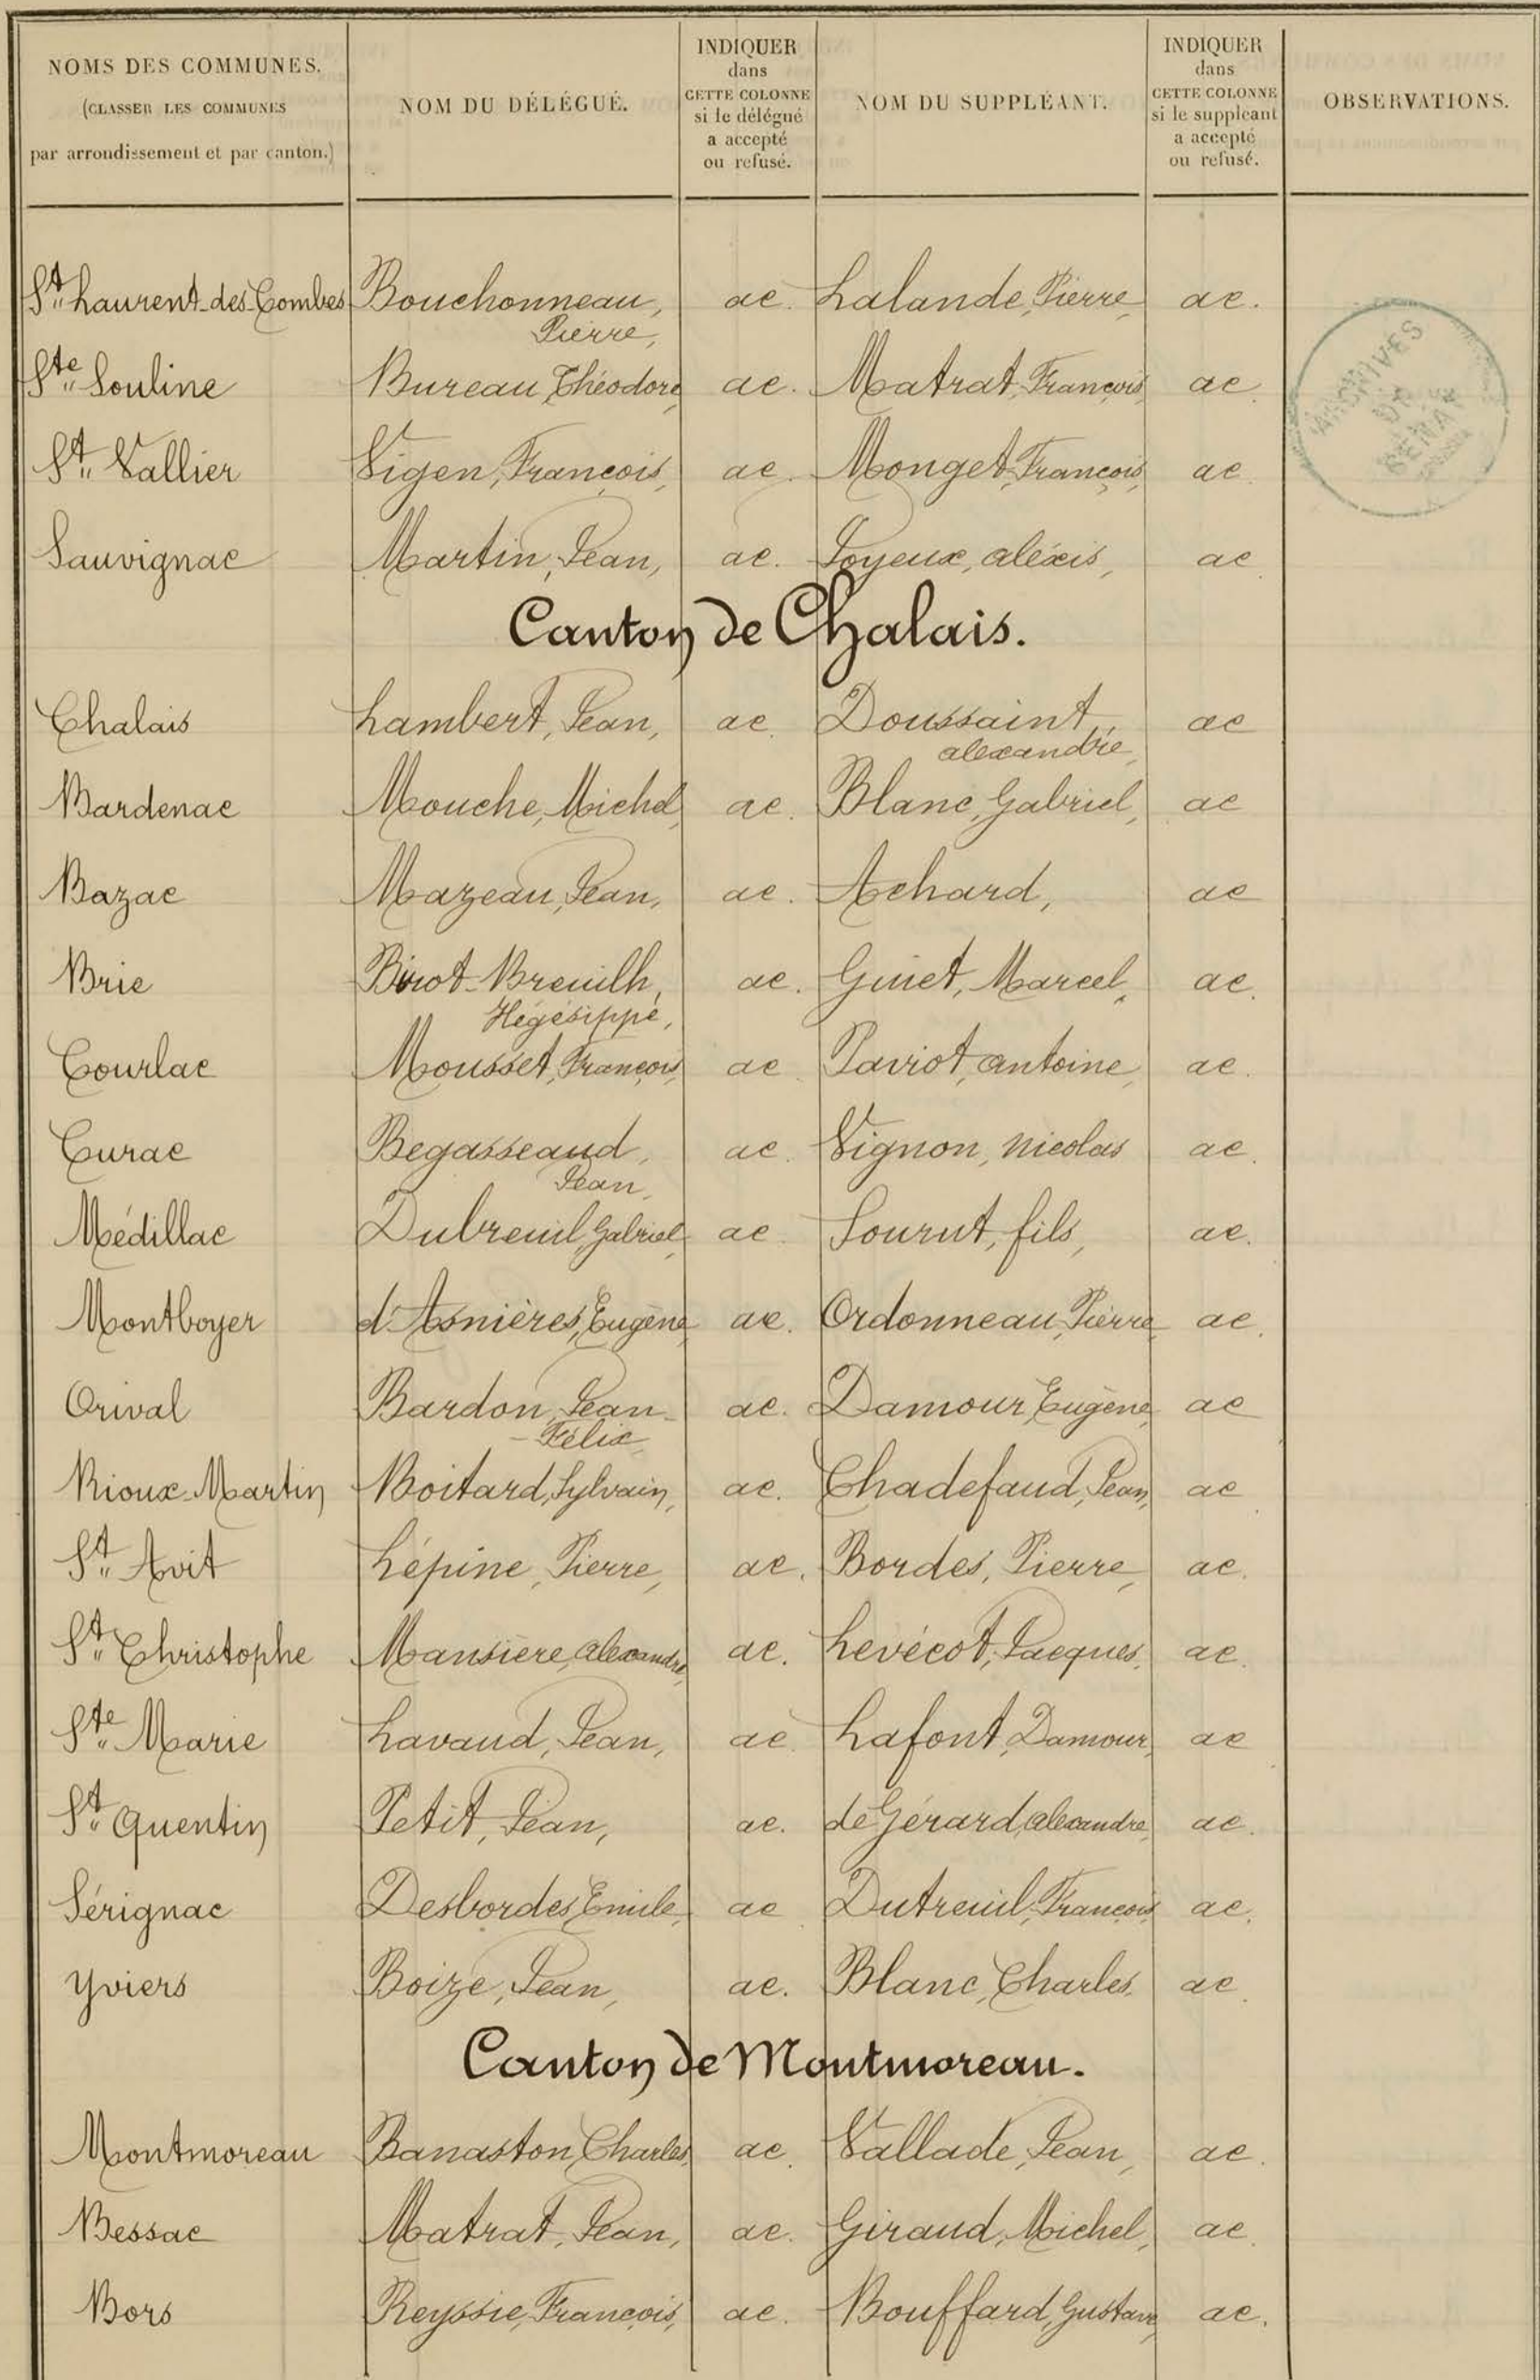 NOMS DES COMMUNES.
(CLASSER LES COMMUNES
par arrondissement et par canton.)
NOM DU DÉLÉGUÉ.
INDIQUER
dans
CETTE COLONNE
si le délégué
a accepté
ou refusé.
NOM DU SUPPLÉANT.
INDIQUER
dans
CETTE COLONNE
si le suppléant
a accepté
ou refusé.
OBSERVATIONS.
St Laurent-des-Combes Bouchonneau, Pierre, ac. Lalande, Pierre, ac.
Ste Souline Bureau, Théodore, ac. Matrat, François, ac.
St Vallier Vigen, François, ac. Monget, François, ac.
Sauvignac Martin, Jean, ac. Joyeux, Aléxis, ac.
ARCHIVES DU SENAT
Canton de Chalais.
Chalais Lambert, Jean, ac. Doussaint, Alexandre, ac
Bardenac Mouche, Michel, ac. Blanc, Gabriel, ac
Bazac Mazeau, Jean, ac. Achard, ac
Brie Birot-Breuilh, Hégésippe, ac. Ginet, Marcel, ac.
Courlac Mousset, François, ac. Paviot, Antoine, ac.
Curac Begasseaud, Jean, ac. Vignon, Nicolas ac.
Médillac Dubreuil, Gabriel, ac. Sourut, fils, ac.
Montboyer d'Asnières, Eugène, ac. Ordonneau, Pierre, ac.
Orival Bardon, Jean-Félix, ac. Damour, Eugène, ac
Rioux-Martin Boitard, Sylvain, ac. Chadefaud, Jean, ac.
St Avit Lépine, Pierre, ac. Bordes, Pierre, ac.
St Christophe Mansière, Alexandre, ac. Levécot, Jacques, ac.
Ste Marie Lavaud, Jean, ac. Lafont, Damour, ac
St Quentin Petit, Jean, ac. de Gérard, Alexandre, ac.
Sérignac Desbordes, Emile, ac Dutreuil, François, ac.
Yviers Boize, Jean, ac. Blanc, Charles, ac.
Canton de Montmoreau.
Montmoreau Banaston, Charles, ac. Vallade, Jean, ac.
Bessac Matrat, Jean, ac. Giraud, Michel, ac.
Bors Reyssie, François, ac. Bouffard, Gustave, ac.